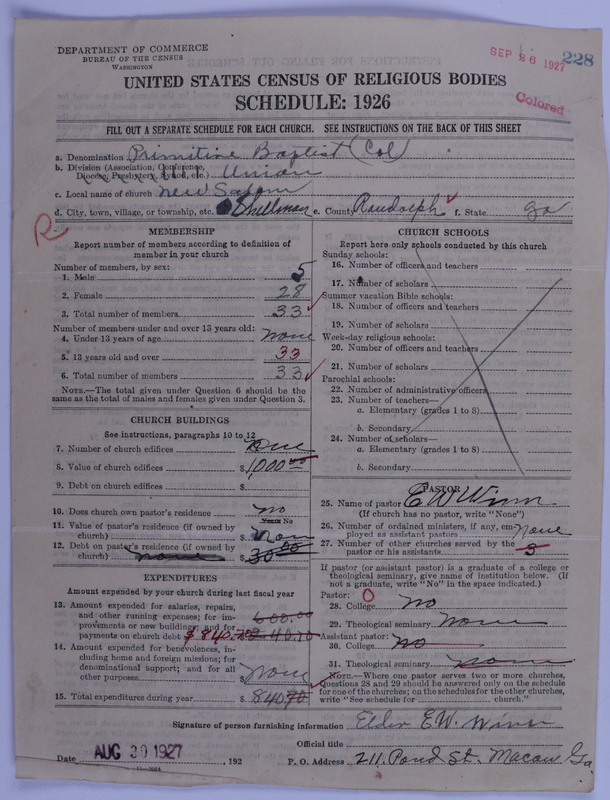 DEPARTMENT OF COMMERCE
BUREAU OF THE CENSUS
WASHINGTON
SEP 26 1927
228
Colored
UNITED STATES CENSUS OF RELIGIOUS BODIES
SCHEDULE: 1926
FILL OUT A SEPARATE SCHEDULE FOR EACH CHURCH. SEE INSTRUCTIONS ON THE BACK OF THIS SHEET
a. Denomination Primitive Baptist (Col)
b. Division (Association, Conference,
Diocese, Presbytery, Synod, etc.) Union
c. Local name of church New Salem
d. City, town, village, or township, etc. Shellman e. County Randolph f. State Ga
R
MEMBERSHIP
Report number of members according to definition of
member in your church
Number of members, by sex:
1. Male 5
2. Female 28
3. Total number of members 33
Number of members under and over 13 years old:
4. Under 13 years of age none
5. 13 years old and over 33
6. Total number of members 33
NOTE.—The total given under Question 6 should be the
same as the total of males and females given under Question 3.
CHURCH BUILDINGS
See instructions, paragraphs 10 to 12
7. Number of church edifices One
8. Value of church edifices $1,000.00
9. Debt on church edifices $
10. Does church own pastor's residence no
Yes or No
11. Value of pastor's residence (if owned by
church) $ non
12. Debt on pastor's residence (if owned by
church) none $ 30.00
EXPENDITURES
Amount expended by your church during last fiscal year
13. Amount expended for salaries, repairs,
and other running expenses; for im-
provements or new buildings; and for
payments on church debt $840.70 600.00 40.70
14. Amount expended for benevolences, in-
cluding home and foreign missions; for
denominational support; and for all
other purposes $ None
15. Total expenditures during year $ 840.70
CHURCH SCHOOLS
Report here only schools conducted by this church
Sunday schools:
16. Number of officers and teachers
17. Number of scholars
Summer vacation Bible schools:
18. Number of officers and teachers
19. Number of scholars
Week-day religious schools:
20. Number of officers and teachers
21. Number of scholars
Parochial schools:
22. Number of administrative officers
23. Number of teachers—
a. Elementary (grades 1 to 8)
b. Secondary
24. Number of scholars—
a. Elementary (grades 1 to 8)
b. Secondary
PASTOR
25. Name of pastor E W Winn
(If church has no pastor, write "None")
26. Number of ordained ministers, if any, em-
ployed as assistant pastors None
27. Number of other churches served by the
pastor or his assistants 3
If pastor (or assistant pastor) is a graduate of a college or
theological seminary, give name of institution below. (If
not a graduate, write "No" in the space indicated.)
Pastor: 0
28. College No
29. Theological seminary None
Assistant pastor:
30. College No
31. Theological seminary none
NOTE.—Where one pastor serves two or more churches,
Questions 28 and 29 should be answered only on the schedule
for one of the churches; on the schedules for the other churches,
write "See schedule for church."
Signature of person furnishing information Elder E.W. Winn
Official title
Date AUG 30 1927, 192 P. O. Address 211 Pond St. Macon Ga